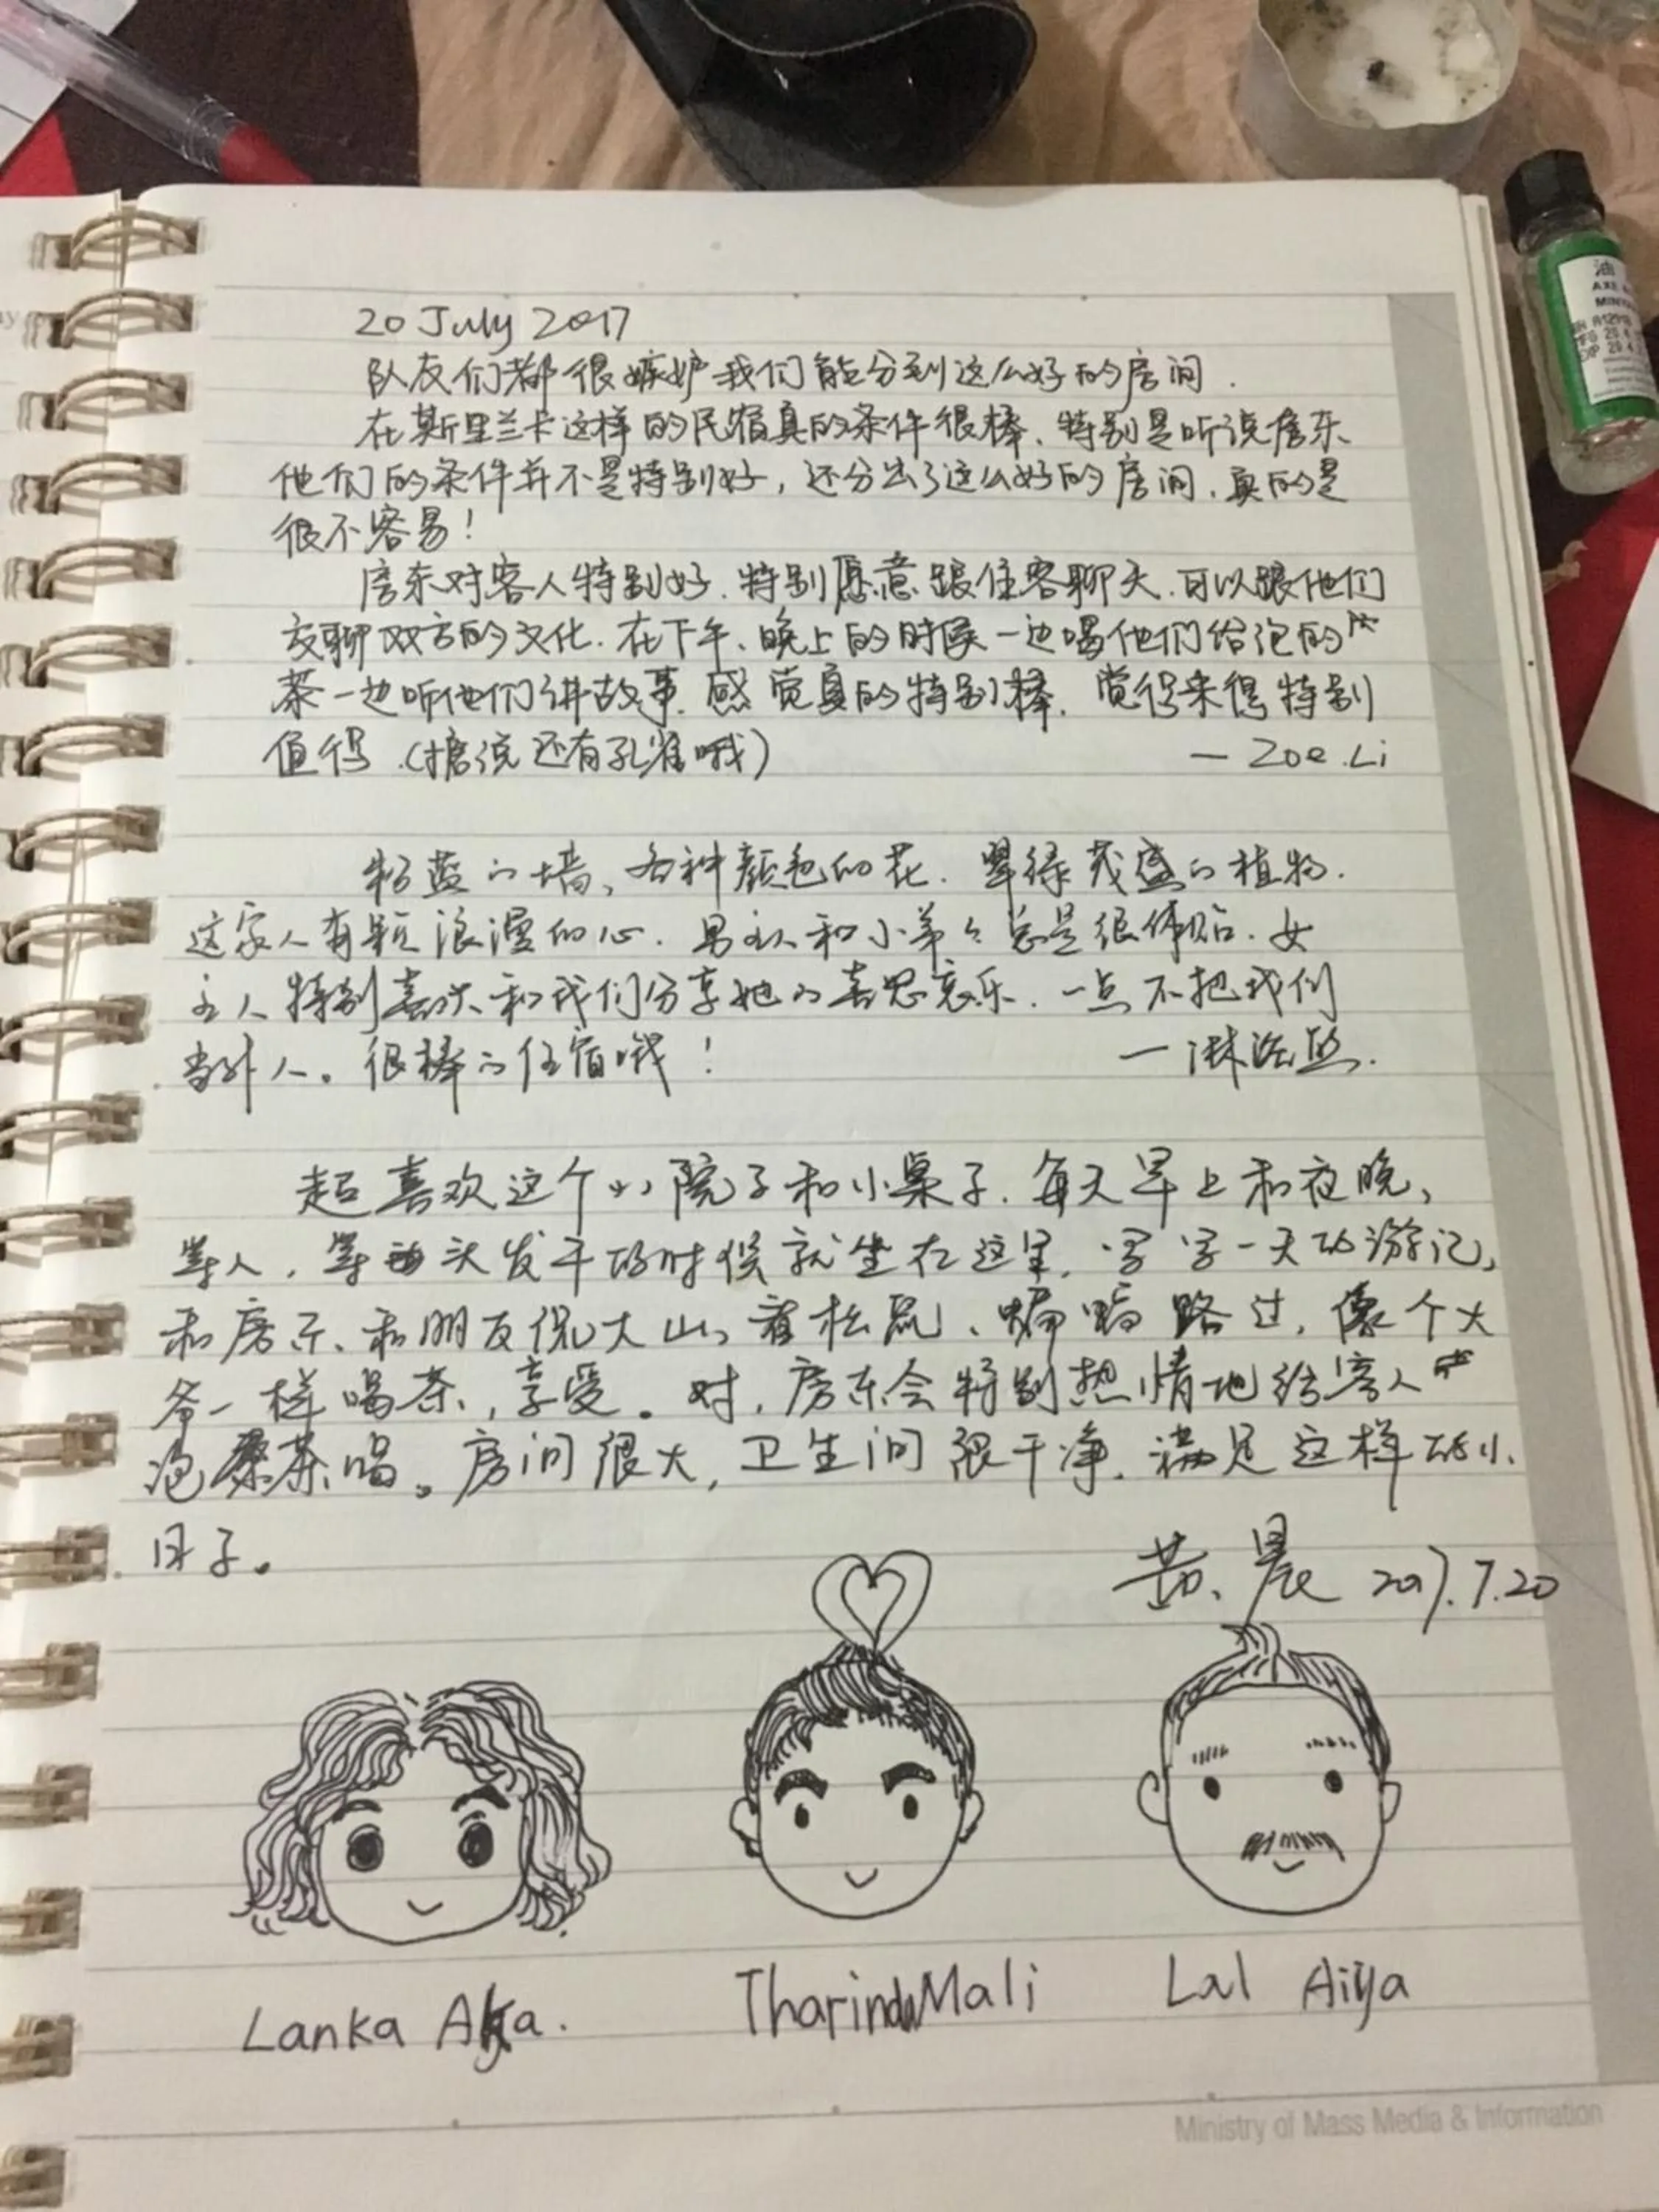 20 July 2017
队友们都很嫉妒我们能分到这么好的房间.
在斯里兰卡这样的民宿真的条件很棒、特别是听说房东
他们的条件并不是特别好，还分出了这么好的房间，真的是
很不容易！
房东对客人特别好.特别愿意跟住客聊天.可以跟他们
交聊双方的文化.在下午、晚上的时候一边喝他们给泡的
茶一边听他们讲故事.感觉真的特别棒.觉得来得特别
值得.(据说还有孔雀哦)
— Zoe.Li
粉蓝的墙、各种颜色的花.翠绿茂盛的植物.
这家人有颗浪漫的心.男主人和小弟弟总是很体贴.女
主人特别喜欢和我们分享她的喜思哀乐.一点不把我们
当外人。很棒的住宿哦！
超喜欢这个小院子和小桌子.每天早上和夜晚、
等人，等头发干的时候就坐在这里.写写一天的游记，
和房东、和朋友侃大山、看松鼠、蝙蝠路过，像个大
爷一样喝茶，享受。对，房东会特别热情地给客人
泡茶喝。房间很大，卫生间很干净.满足这样的小
日子。
晨 2017.7.20
Lanka Akka.
Tharindu Mali
Lal Aiya
Ministry of Mass Media & Information
油
AXE